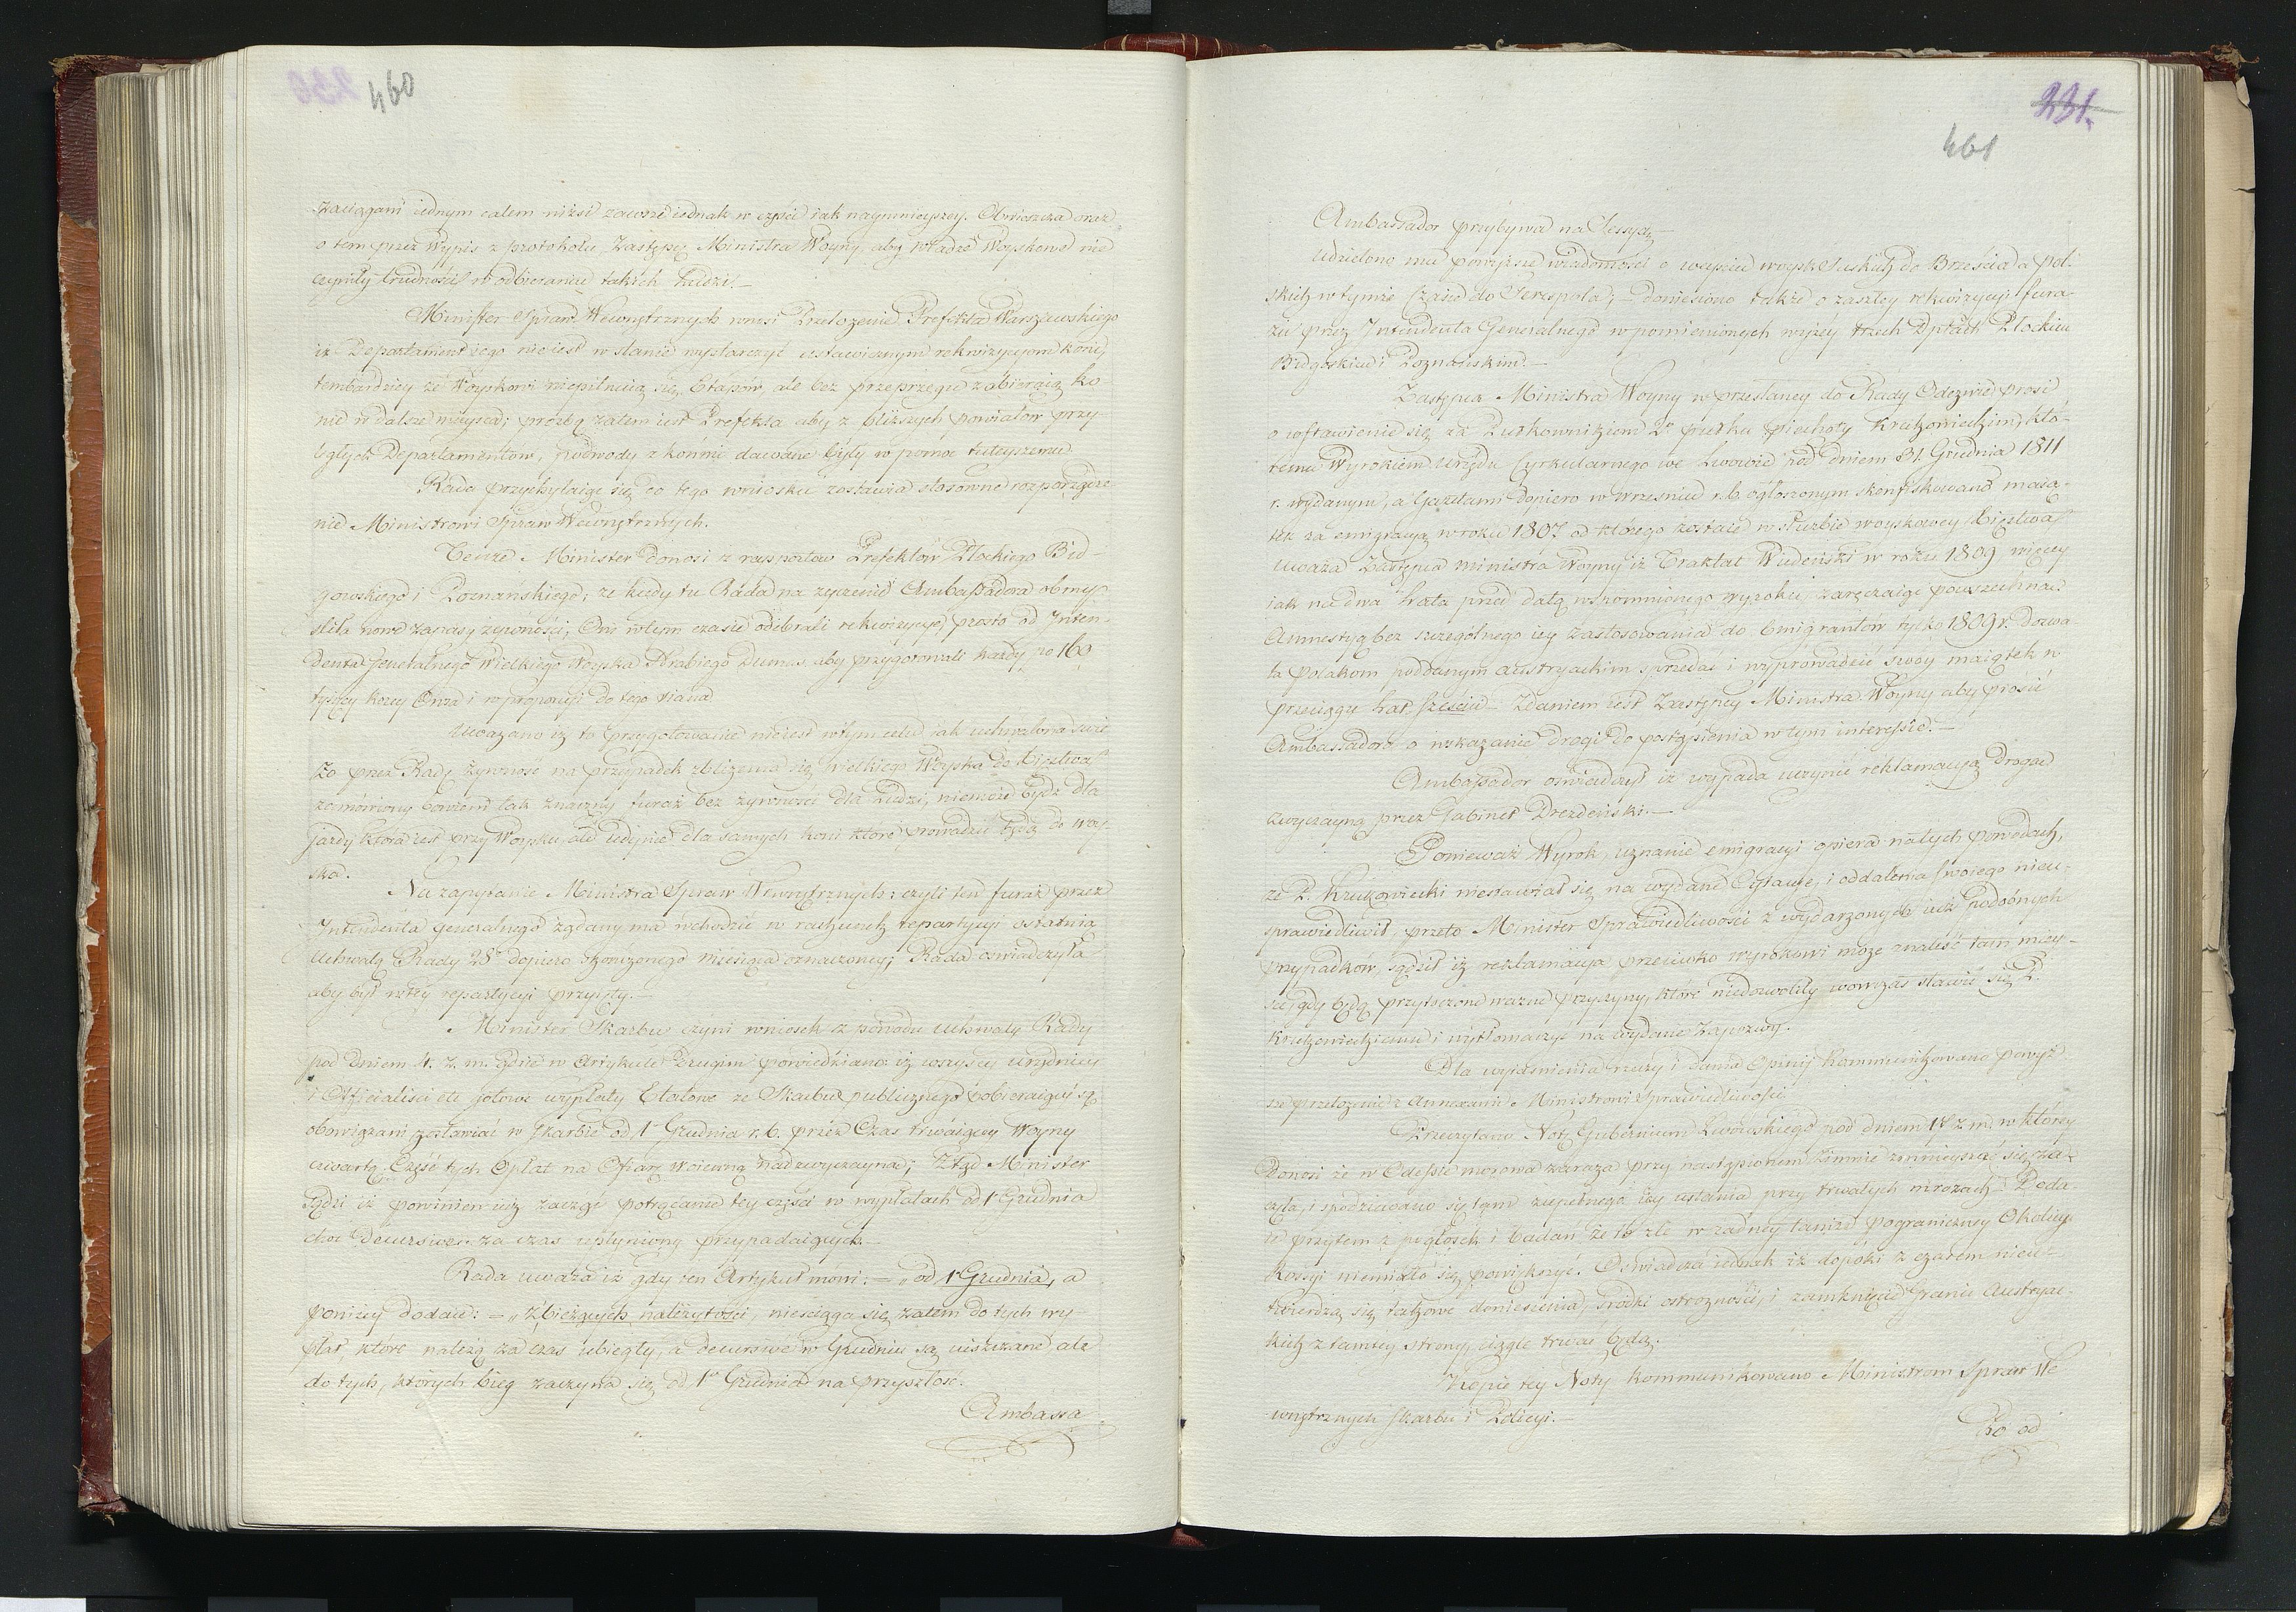 460
zaciągani iednym calem niżsi zawsze iednak w części iak naymnieyszey. Obwieszcza oraz
o tem przez Wypis z protokołu Zastępcę Ministra Woyny, aby władze Woyskowe nie
czyniły trudności w odbieraniu takich ludzi.—
Minister Spraw Wewnętrznych wnosi Przełożenie Prefekta Warszawskiego
iż Departament iego nie iest w stanie wystarczyć ustawicznym rekwizycyom koni,
tembardziey że Woyskowi niepilnuią się Etapów, ale bez przeprzęgu zabieraią ko-
nie w dalsze mieysca; prozbą zatem iest Prefekta aby z bliższych powiatów przy-
ległych Departamentów, podwody z końmi dawane były w pomoc tuteyszemu.
Rada przychylaiąc się do tego wniosku zostawia stosowne rozporządze
nie Ministrowi Spraw Wewnętrznych.
Tenże Minister donosi z rapportów Prefektów Płockiego Bid-
goskiego i Poznańskiego, że kiedy tu Rada na życzenie Ambassadora obmy-
śliła nowe zapasy żywności, Oni w tym czasie odebrali rekwizycye prosto od Inten-
denta Generalnego Wielkiego Woyska Hrabiego Dumas aby przygotowali każdy po 160
tysięcy korcy Owsa i w proporcyi do tego siana.
Uważano iż to przygotowanie nie iest w tym celu iak uchwalona świe
żo przez Radę żywność na przypadek zbliżenia się wielkiego Woyska do Xięstwa
zamówiony bowiem tak znaczny furaż bez żywności dla Ludzi, niemoże bydź dla
Jazdy która iest przy Woysku, ale iedynie dla samych koni które prowadzić będą do Woy-
ska.
Na zapytanie Ministra Spraw Wewnętrznych: czyli ten furaż przez
Intendenta generalnego żądany ma wchodzić w rachunek repartycyi ostatnią
Uchwałą Rady 28o dopiero skończonego miesiąca oznaczoney; Rada oswiadczyła
aby był w tey repartycyi przyięty.—
Minister Skarbu czyni wniosek z powodu Uchwały Rady
pod dniem 4. z. m. gdzie w Artykule Drugim powiedziano: iż wszyscy urzędnicy
i Officialiści etc gotowe wypłaty Etatowe ze Skarbu publicznego pobieraiący są
obowiązani zostawiać w skarbie od 1o Grudnia r.b. przez Czas trwaiącey Woyny
czwartą Część tych Opłat na Ofiarę woienną nadzwyczayną; Ztąd Minister
sądzi iż powinien iuż zacząć potrącanie tey części w wypłatach od 1o Grudnia
choć Decursive za czas upłyniony przypadaiących.—
Rada uważa iż gdy ten Artykuł mówi: — „od 1o Grudnia, a
poniżey dodaie: — „z bieżących należytości, nieściąga się zatem do tych wy
płat, które należą za czas ubiegły, a decursive w Grudniu są uiszczane ale
do tych, których bieg zaczyna się od 1o Grudnia na przyszłość.
Ambassa
231.
461
Ambassador przybywa na Sessyą.—
Udzielono mu powyższe wiadomości o weyściu woysk Ruskich do Brześcia a pol-
skich w tymże Czasie do Terespola; — doniesiono także o zaszłey rekwizycyi fura-
żu przez Intendenta Generalnego w pomienionych wyżey trzech Dptach Płockim
Bidgoskim i Poznańskim.—
Zastępca Ministra Woyny w przesłaney do Rady Odezwie prosi
o wstawienie się za Pułkownikiem 2o pułku piechoty Krukowieckim, któ-
remu Wyrokiem Urzędu Cyrkularnego we Lwowie pod dniem 31. Grudnia 1811
r. wydanym, a Gazetami dopiero w Wrześniu r.b. ogłoszonym skonfiskowano mają-
tek za emigracyą w roku 1807 od którego zostaie w służbie woyskowey Xięstwa
Uważa Zastępca Ministra Woyny iż Traktat Wiedeński w roku 1809 więcey
iak na dwa Lata przed datą wspomnionego wyroku, zaręczaiąc powszechną
Amnestyą bez szczególnego iey zastosowania do Emigrantów tylko 1809 r. dozwa-
la polakom poddanym austryackim sprzedać i wyprowadzić swoy maiątek w
przeciągu lat sześciu— Zdaniem iest Zastępcy Ministra Woyny aby prosić
Ambassadora o wskazanie drogi do postąpienia w tym interessie.—
Ambassador oświadczył iż wypada uczynić reklamacyą drogą
zwyczayną przez Gabinet Drezdeński.—
Ponieważ Wyrok, uznanie emigracyi opiera na tych powodach,
że P. Krukowiecki niestawiał się na wydane Cytacye, i oddalenia swoiego nieu-
sprawiedliwił, przeto Minister Sprawiedliwości z wydarzonych iuż podobnych
przypadków sądził iż reklamacya przeciwko wyrokowi może znaleść tam miey-
sce, gdy będą przytoczone ważne przyczyny, które niedozwoliły wówczas stawić się P.
Krukowieckiemu i wytłomaczyć na wydane Zapozwy.
Dla wyiaśnienia rzeczy i dania Opinii kommunikowano powyż
sze przełożenie z Annexami Ministrowi Sprawiedliwości.
Przeczytano Notę Gubernium Lwowskiego pod dniem 18 z. m. w którey
donosi że w Odessie morowa zaraza przy nastąpionem zimnie zmnieyszać się za-
częła, i spodziewano się tam zupełnego iey ustania przy trwałych mrozach. Doda-
ie przytem z pogłosek i badań że to złe w żadney tamże pograniczney Okolicy
Rossyi niemiało się powiększyć. Oświadcza iednak iż dopóki z czasem nieu-
twierdzą się takowe doniesienia, środki ostrożności i zamknięcie Granic Austryac-
kich z tamtey strony, ciągle trwać będą.
Kopie tey Noty kommunikowano Ministrom Spraw We
wnętrznych Skarbu i Policyi.—
Po od